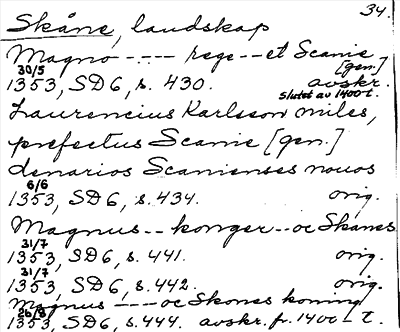 34.
Skåne, landskap
Magno --- rege -- et Scanie [gen.]
30/5
1353, SD6, s. 430. avskr.
slutet av 1400 t.
Laurencius Karlsson miles,
prefectus Scanie [gen.]
denarios Scanienses nouos
6/6
1353, SD6, s. 434. orig.
Magnus -- konger -- oc Skanes
31/7
1353, SD6, s. 441. orig.
31/7
1353, SD6, s. 442. orig.
Magnus --- oc Skones koning
1353, SD6, s. 444. avskr. fr. 1400 t.